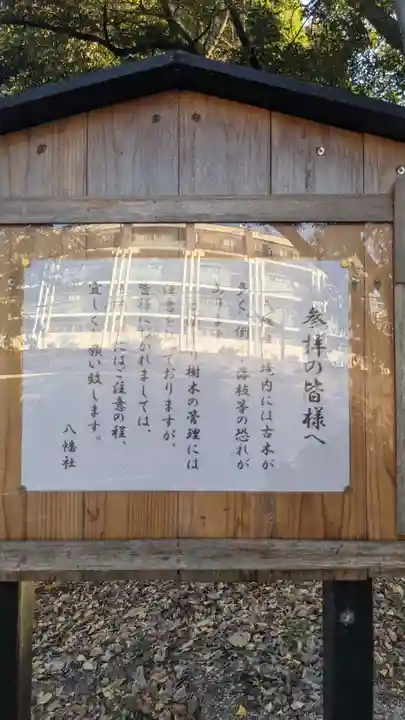 参拝の皆様へ
境内には古木が
多く、倒 落枝等の恐れが
り樹木の管理には
注意しておりますが、
皆様におかれましては、
にはご注意の程、
宜しく 願い致します。
八幡社